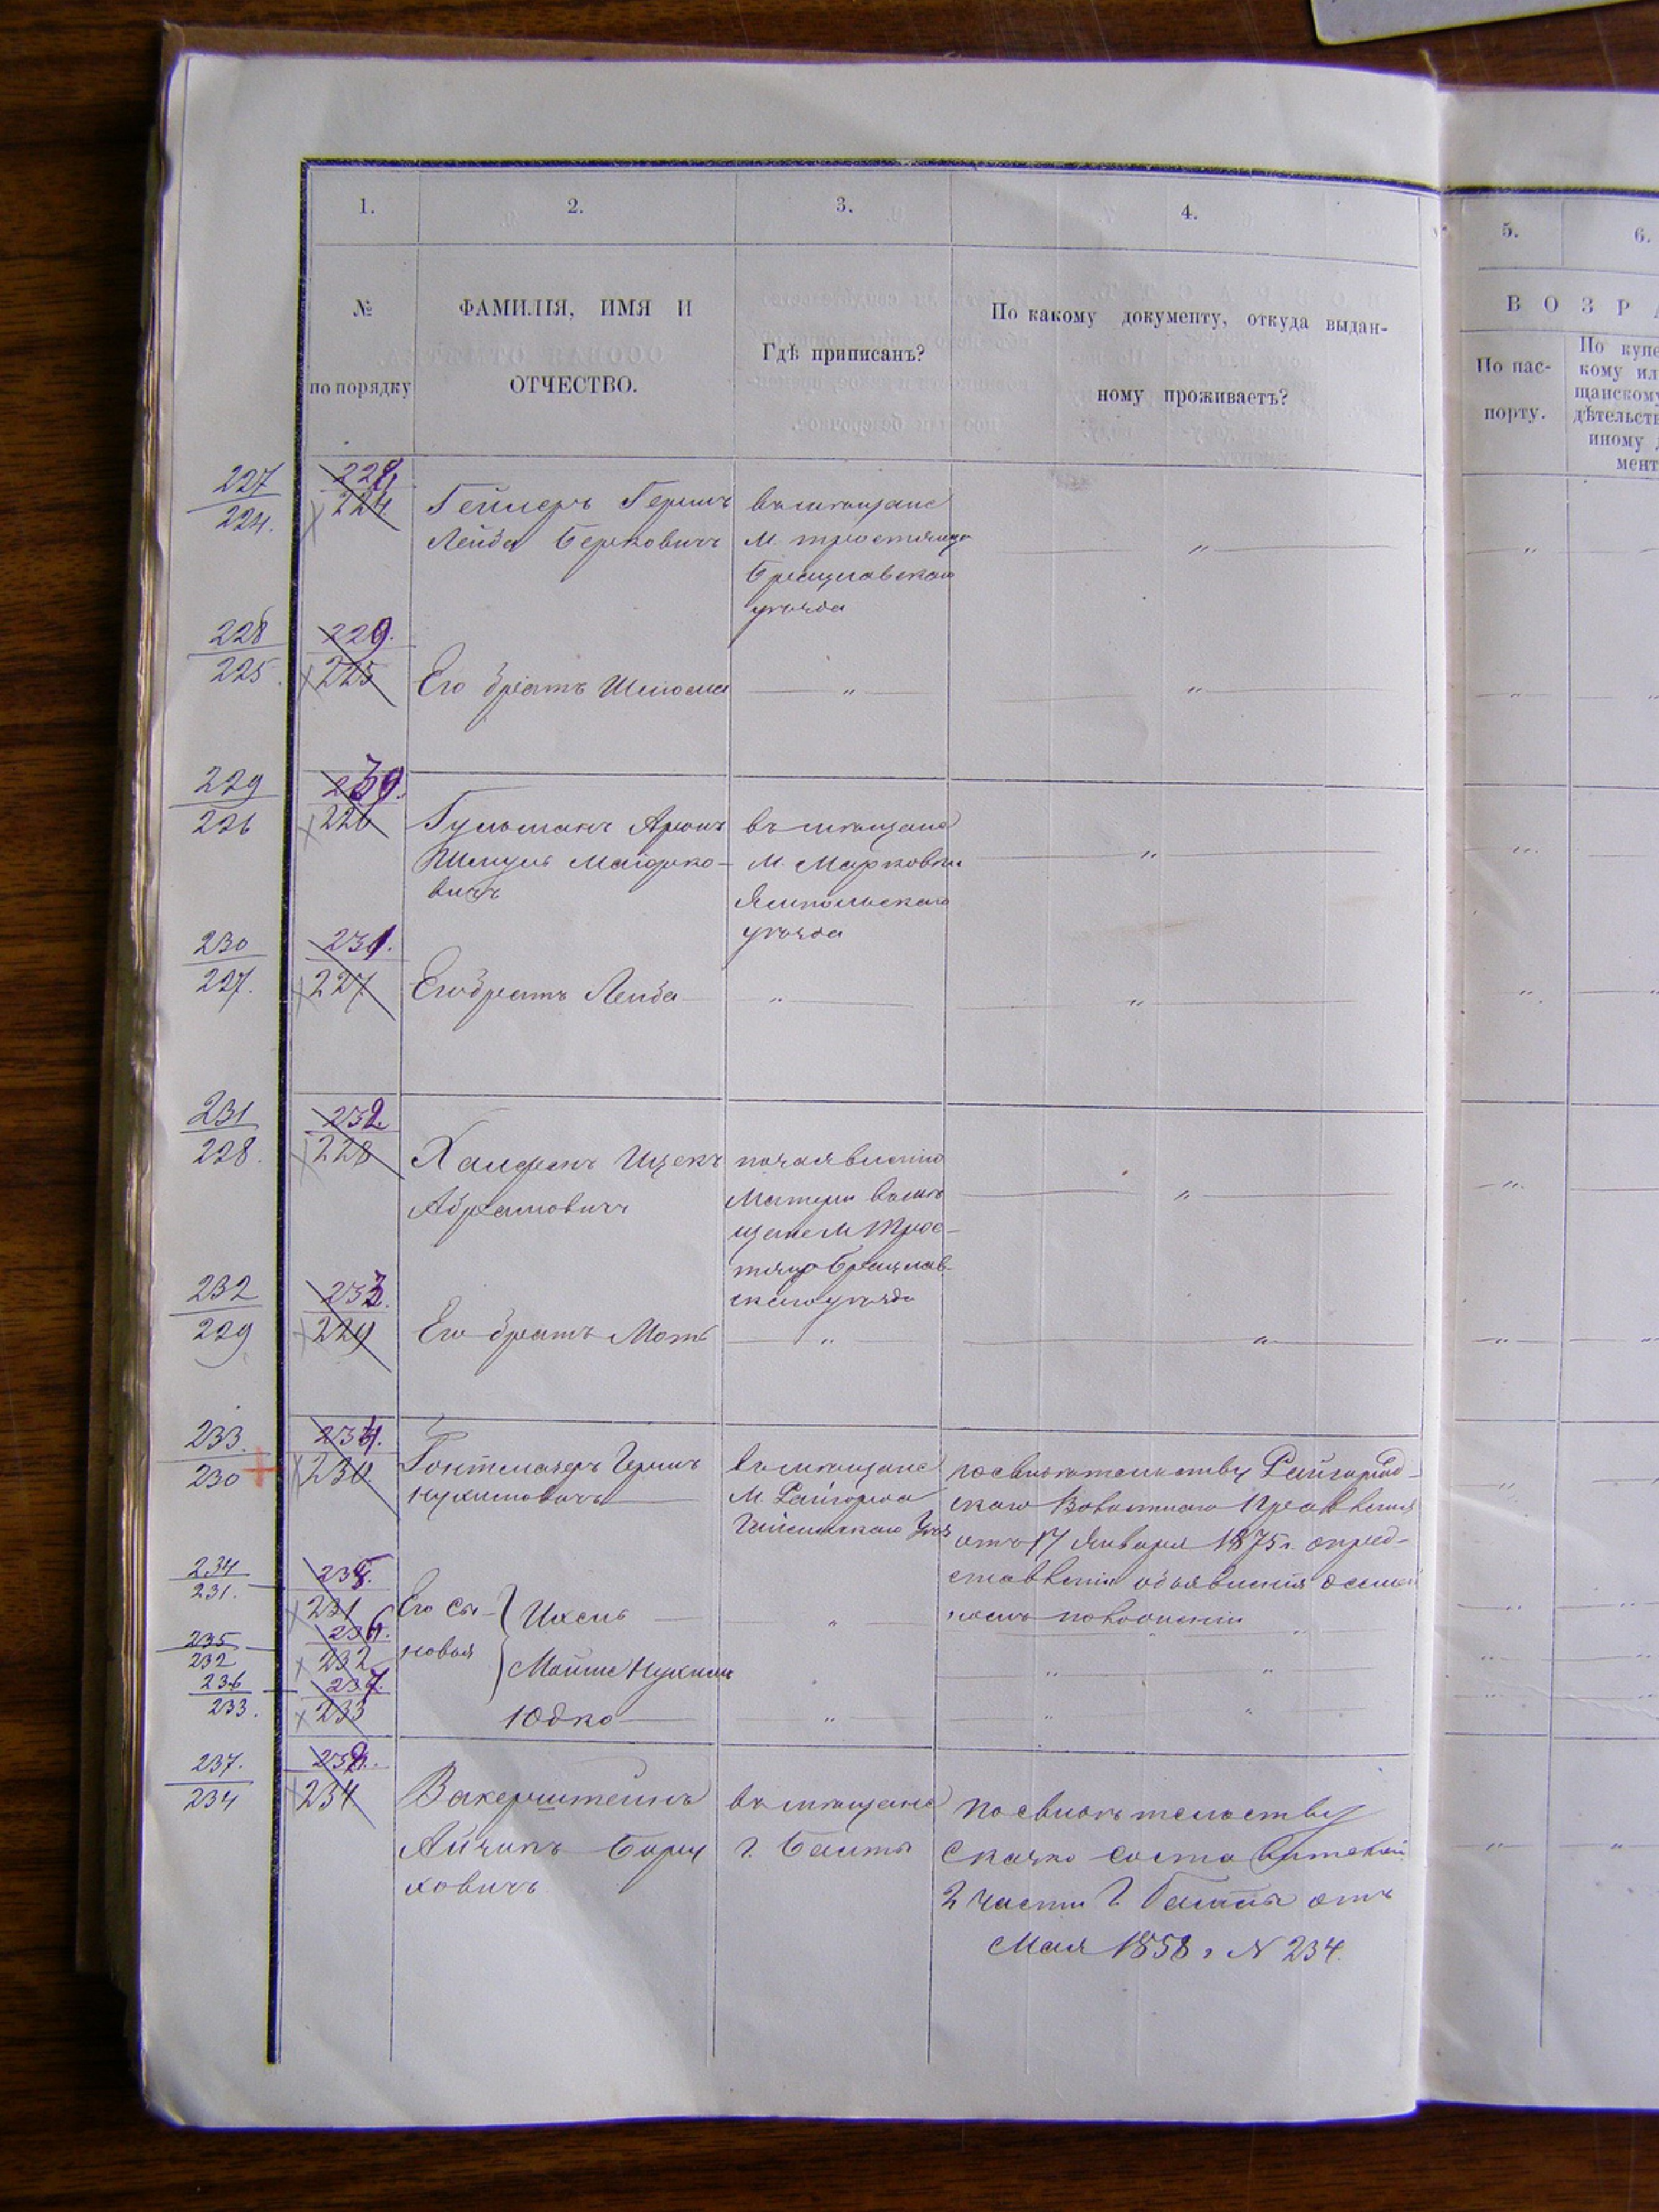 1. 2. 3. 4. 5. 6.
№ по порядку
ФАМИЛІЯ, ИМЯ И
ОТЧЕСТВО.
Гдѣ приписанъ?
По какому документу, откуда выдан-
ному проживаетъ?
ВОЗРА
По пас-
порту.
По купе
кому ил
щанскому
дѣтельств
иному
мент
227
224.
228
224
Гершъ
Лейба Берковичъ
въ мѣщане
м. Тростянца
Брацлавскаго
уѣзда
228
225.
229.
225
Его братъ Шлiома
229
226
230.
226
Гульманъ Аронъ
Шмуль Маiорко-
вичъ
въ мѣщане
М. Марковки
Ямпольскаго
уѣзда
230
227.
231.
227
Его братъ Лейба
231
228.
232
228
Ицекъ
Абрамовичъ
по заявленiю
Матери въ мѣ
щане М Трос-
тянца Брацлав-
скаго уѣзда
232
229
233.
229
Его братъ Мот
233.
230
234.
230
Гонтмахеръ Гершъ
Нухимовичъ
въ мѣщане
М. Райгорода
Гайсинскаго Уѣз
по свидѣтельству Райгород-
скаго Волостнаго Правленiя
отъ 17 Января 1875 г. о пред-
ставленiи объявленiя о
234
231.
235.
231
Его сы-
новья
Иxель
235
232
236.
232
Мойше Нухимъ
236
233.
237.
233
Юдко
237.
234
238.
234
Вакерштейнъ
Айзикъ Бору
ховичъ
въ мѣщане
г. Балты
по свидѣтельству
2 части г. Балты отъ
Мая 1858 г № 234.